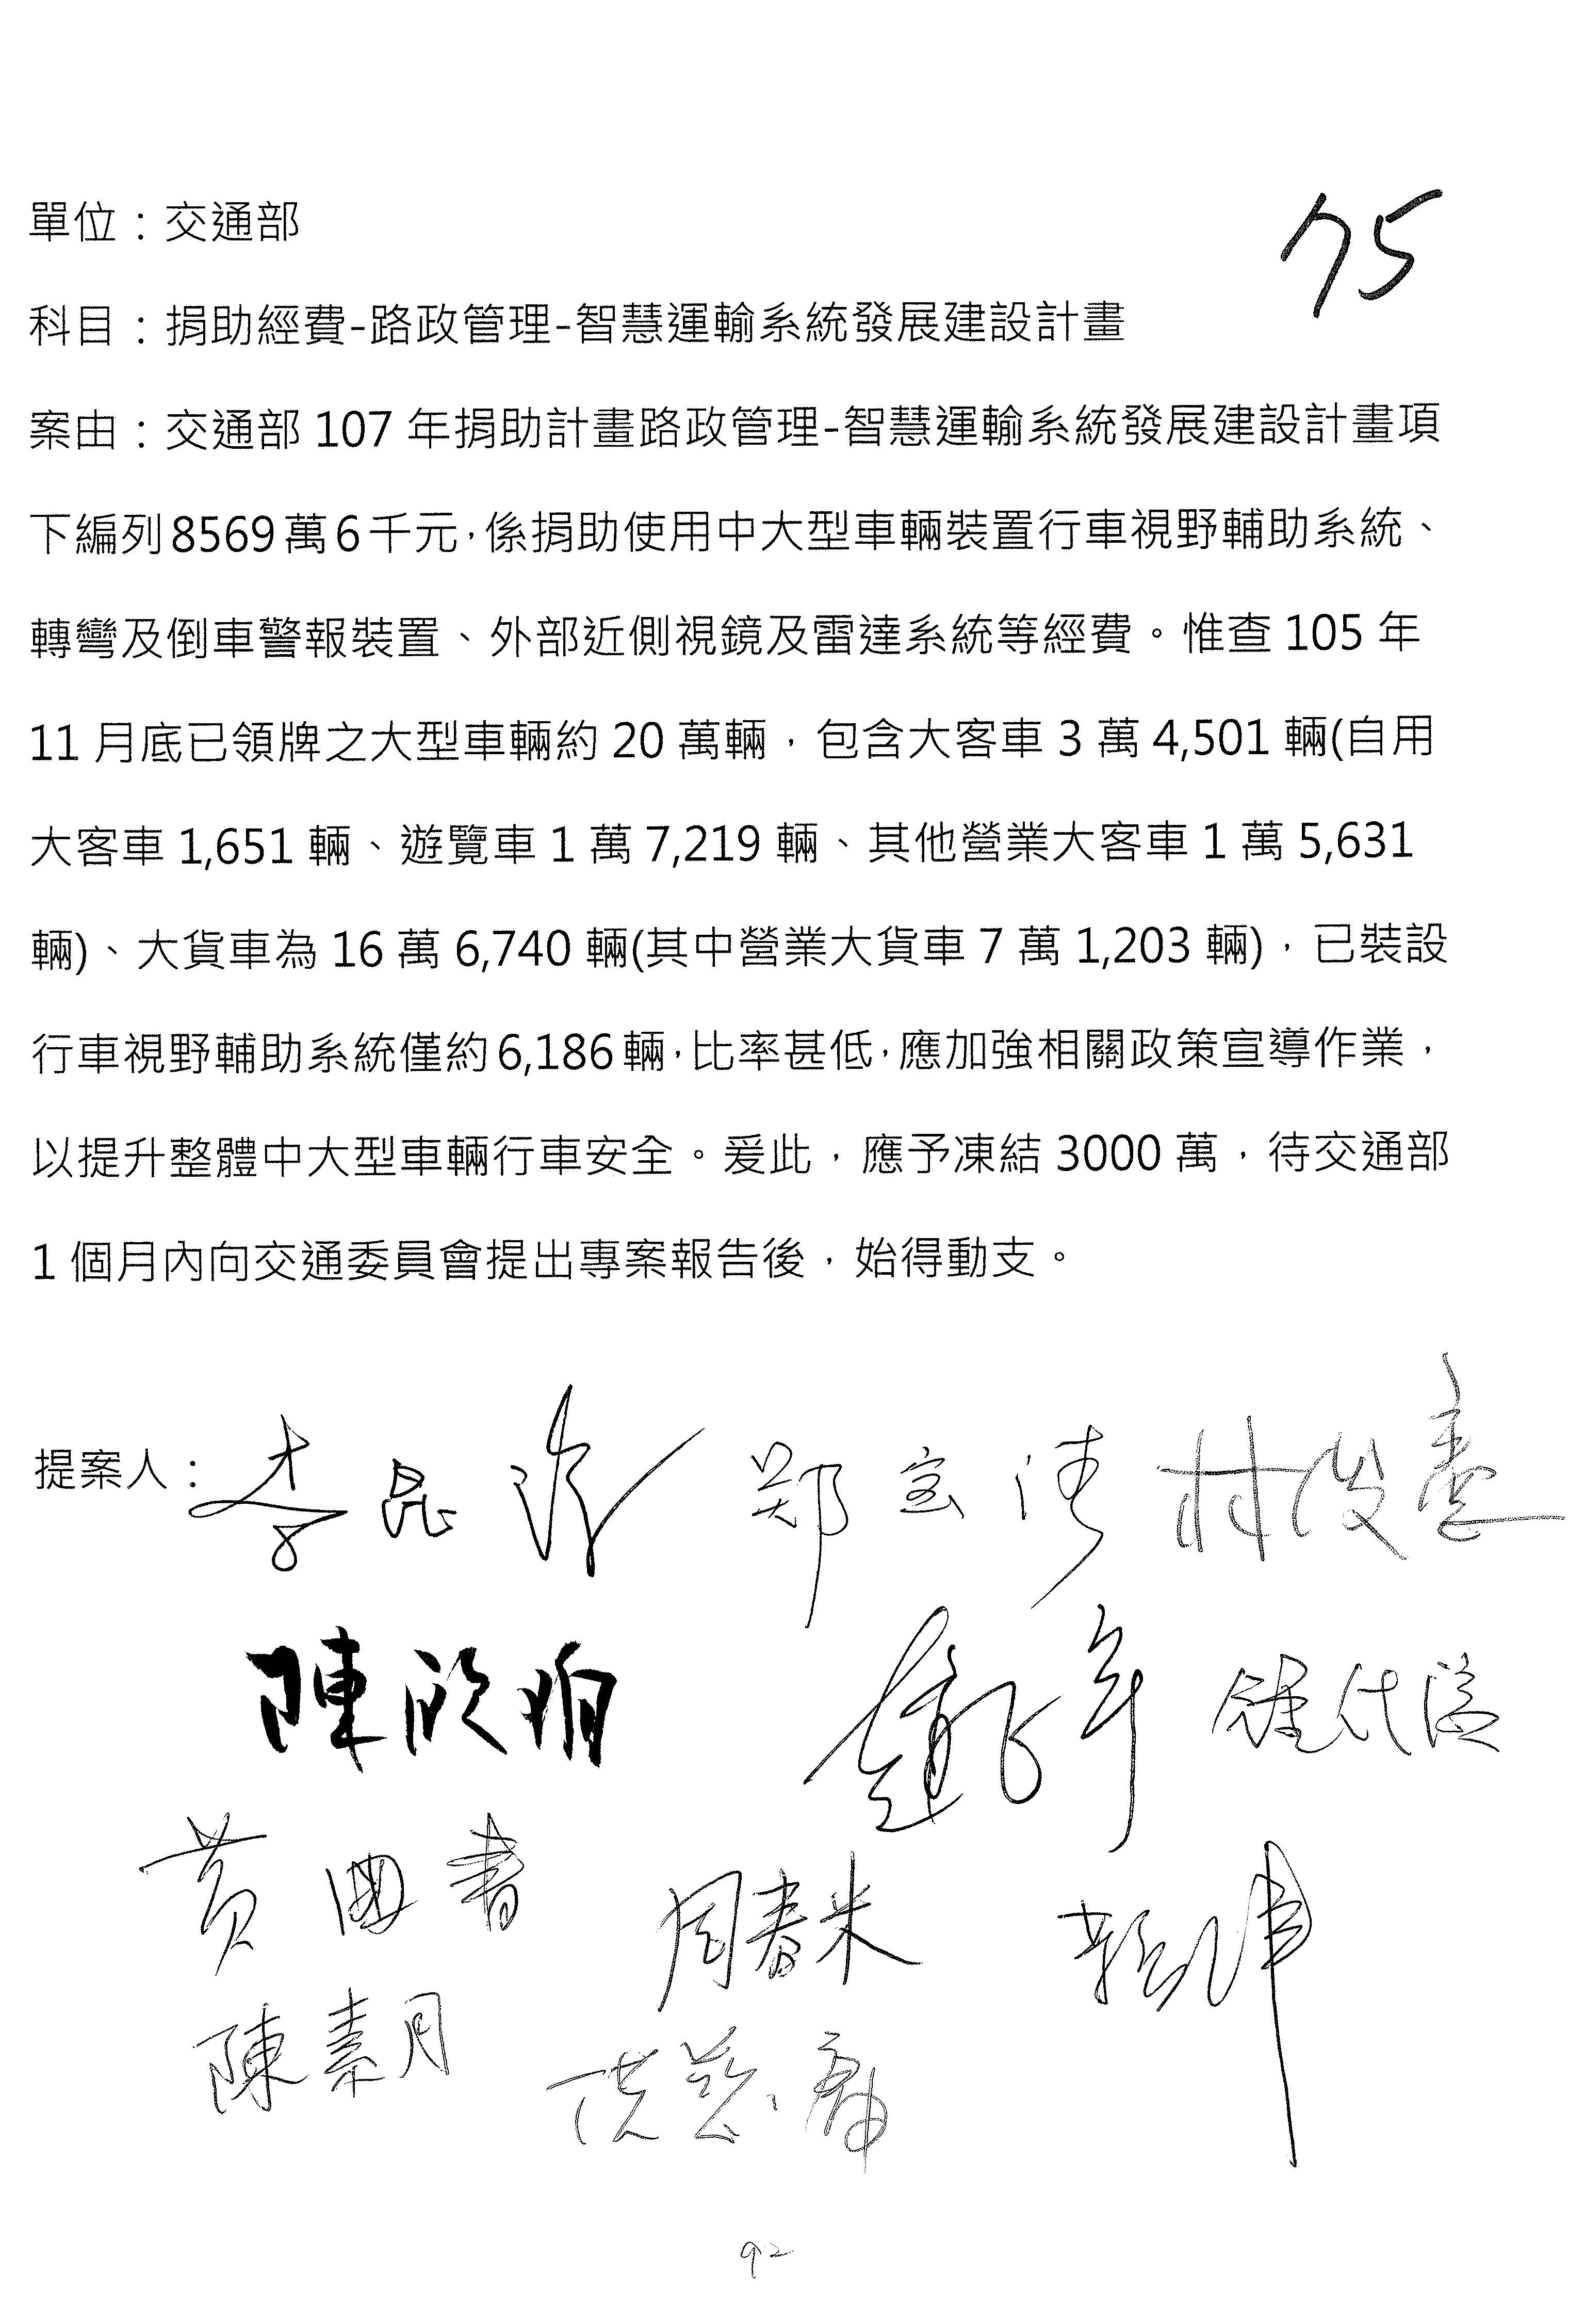 75
單位：交通部
科目：捐助經費-路政管理-智慧運輸系統發展建設計畫
案由：交通部 107 年捐助計畫路政管理-智慧運輸系統發展建設計畫項
下編列 8569 萬 6 千元，係捐助使用中大型車輛裝置行車視野輔助系統、
轉彎及倒車警報裝置、外部近側視鏡及雷達系統等經費。惟查 105 年
11 月底已領牌之大型車輛約 20 萬輛，包含大客車 3 萬 4,501 輛(自用
大客車 1,651 輛、遊覽車 1 萬 7,219 輛、其他營業大客車 1 萬 5,631
輛)、大貨車為 16 萬 6,740 輛(其中營業大貨車 7 萬 1,203 輛)，已裝設
行車視野輔助系統僅約 6,186 輛，比率甚低，應加強相關政策宣導作業，
以提升整體中大型車輛行車安全。爰此，應予凍結 3000 萬，待交通部
1 個月內向交通委員會提出專案報告後，始得動支。
提案人： 李昆澤 鄭宝清 林俊憲
陳欣
黃國書 周春米
陳素月 洪慈庸
92